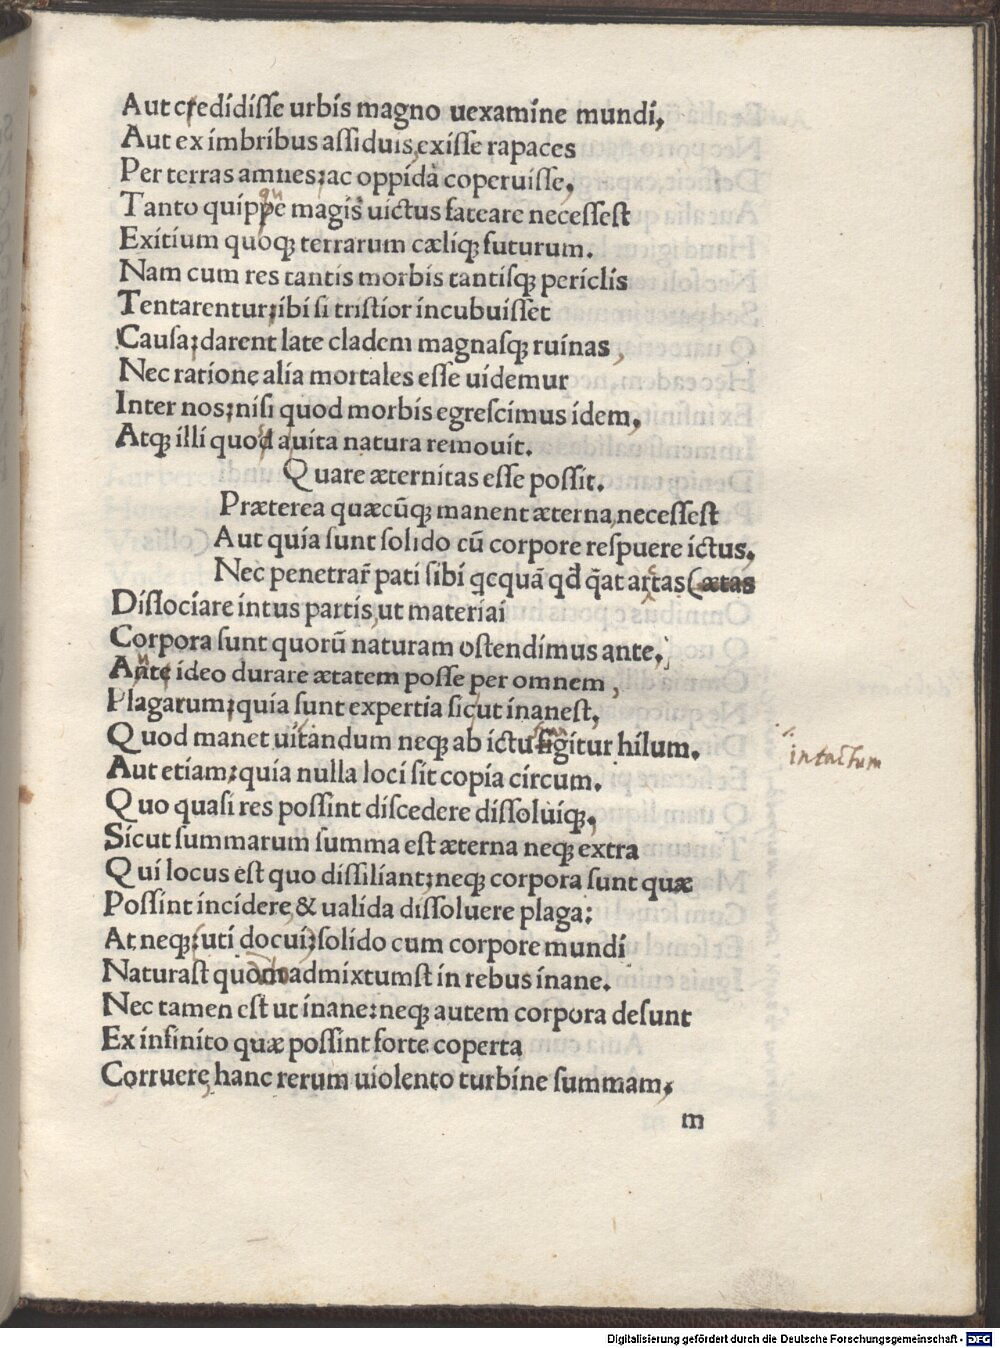 Aut credidisse urbis magno uexamine mundi,
Aut ex imbribus assiduis, exisse rapaces
Per terras amnes; ac oppida coperuisse,
Tanto quippe magis uictus fateare necessest
Exitium quoqꝫ terrarum cæliqꝫ futurum.
Nam cum res tantis morbis tantisqꝫ periclis
Tentarentur; ibi si tristior incubuisset
Causa; darent late cladem magnasqꝫ ruinas,
Nec ratione alia mortales esse uidemur
Inter nos; nisi quod morbis egrescimus idem,
Atqꝫ illi quod auita natura remouit.
Quare æternitas esse possit.
Præterea quæcūqꝫ manent æterna necessest
Aut quia sunt solido cū corpore respuere ictus,
Nec penetrar̃ pati sibi qcquā qd̄ q̄at artas (ætas
Dissociare intus partis, ut materiai
Corpora sunt quorū naturam ostendimus ante,
Ante ideo durare ætatem posse per omnem,
Plagarum; quia sunt expertia sicut inanest,
Quod manet uitandum neqꝫ ab ictu figitur hilum.
intactum
Aut etiam; quia nulla loci sit copia circum.
Quo quasi res possint discedere dissoluiqꝫ,
Sicut summarum summa est æterna neqꝫ extra
Qui locus est quo dissiliant; neqꝫ corpora sunt quæ
Possint incidere, & ualida dissoluere plaga:
At neqꝫ; uti docui; solido cum corpore mundi
Naturast quom admixtumst in rebus inane.
Nec tamen est ut inane: neqꝫ autem corpora desunt
Ex infinito quæ possint forte coperta
Corruere, hanc rerum uiolento turbine summam,
m
Digitalisierung gefördert durch die Deutsche Forschungsgemeinschaft - DFG